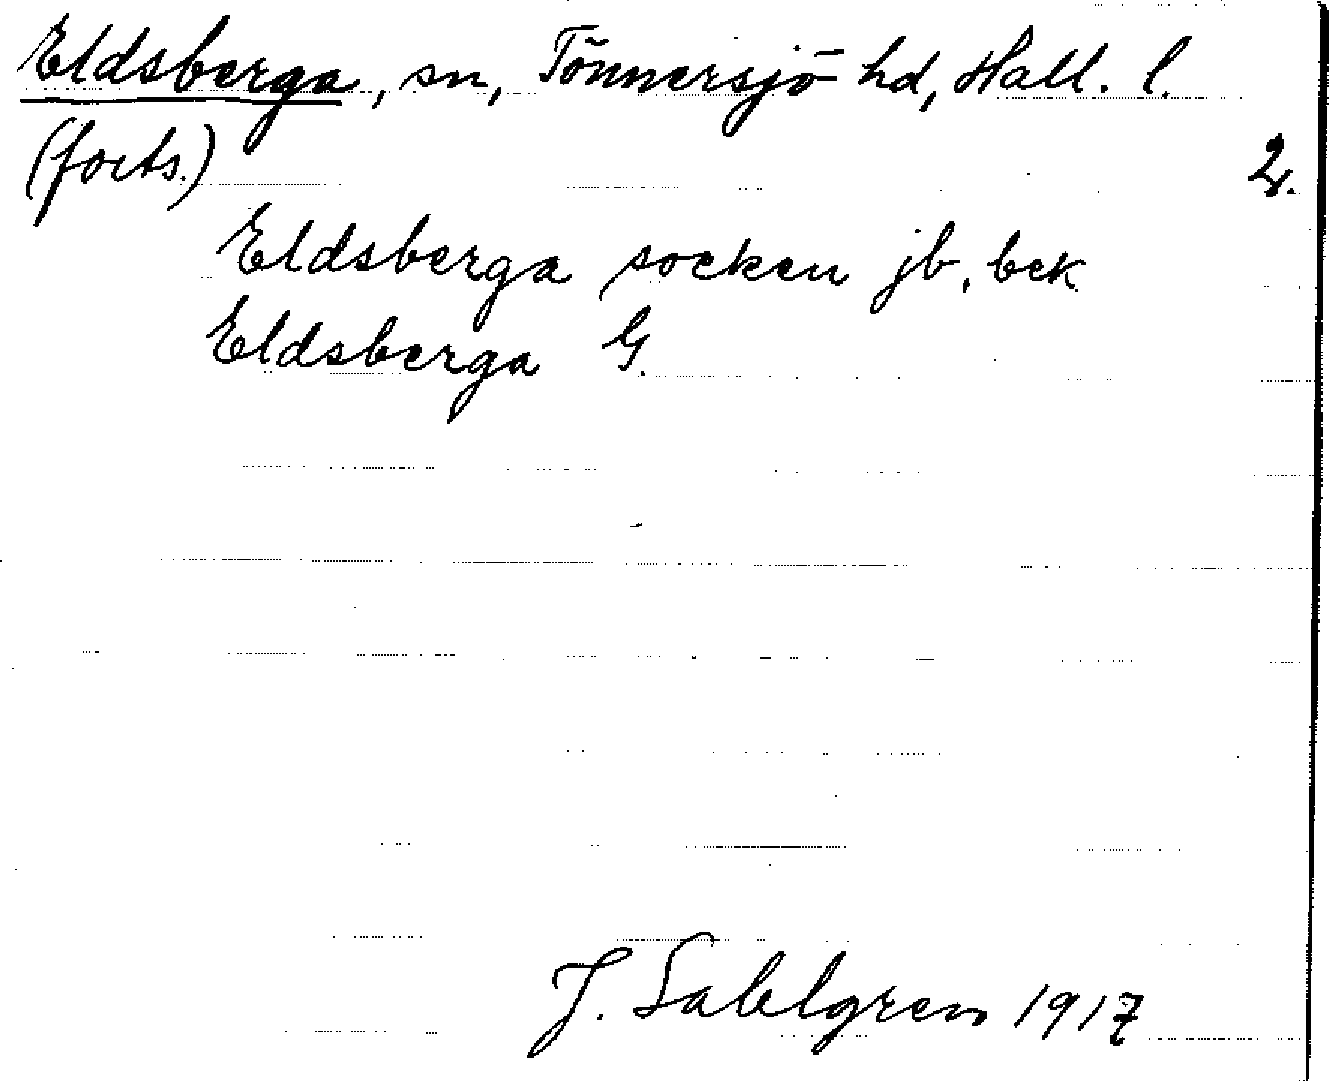 Eldsberga, sn, Tönnersjö hd, Hall. l.
(forts.) 2.
Eldsberga socken jb, bek
Eldsberga G.
J. Sahlgren 1917